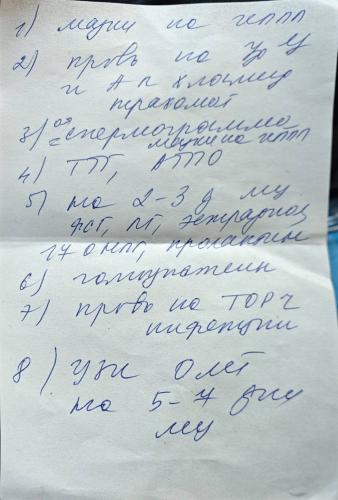 1) мазки на ИППП
2) кровь на ур М
и АТ к хламид
трахомат
3) ♂ спермограмма
= мазки на ИППП
4) ТТГ, АТПО
5) на 2-3 д мц
ФСГ, ЛГ, эстрадиол
17 ОНПГ, пролактин
6) гомоцистеин
7) кровь на ТОРЧ
инфекции
8) УЗИ ОМТ
на 5-7 дни
мц